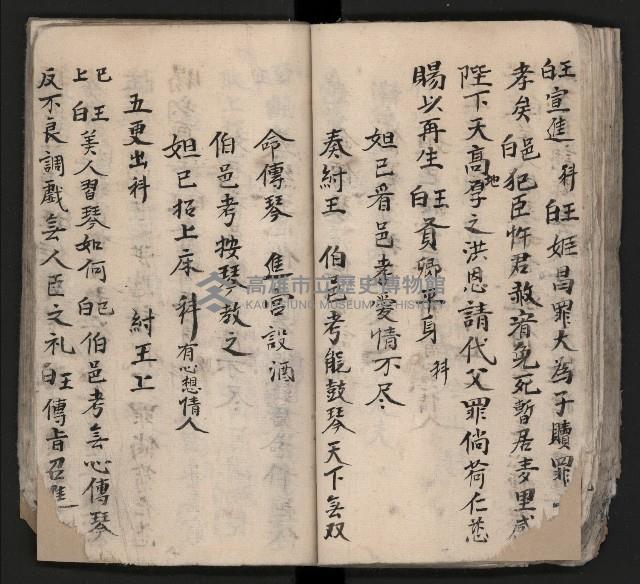 王白宣進 科 王白姬昌罪大為子贖罪
孝矣 邑白犯臣忤君赦宥免死暫居羑里感
陛下天高地厚之洪恩請代父罪倘荷仁慈
賜以再生 王白賢卿平身 科
妲己看邑考愛情不尽
奏紂王 伯邑考能鼓琴天下无双
命傳琴 焦宮設酒
伯邑考按琴教之
妲己招上床 科 有心想情人
五更出科 紂王上
己上 王白美人習琴如何 己白伯邑考无心傳琴
反不良調戲无人臣之礼 王白傳旨召進
高雄市立歷史博物館
KAOHSIUNG MUSEUM OF HISTORY